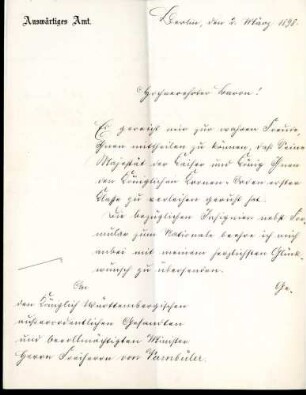 Auswärtiges Amt.
Berlin, den 2. März 1898.
Hochverehrter Baron!
Es gereicht mir zur wahren Freude,
Ihnen mittheilen zu können, daß Seine
Majestät der Kaiser und König Ihnen
den Königlichen Kronen-Orden erster
Klasse zu verleihen geruht hat.
Die bezüglichen Insignien nebst For-
mular zum Nationale beehre ich mich
anbei mit meinem herzlichsten Glück-
wunsch zu übersenden.
An
den Königlich Württembergischen
außerordentlichen Gesandten
und bevollmächtigten Minister
Herrn Freiherrn von Varnbüler.